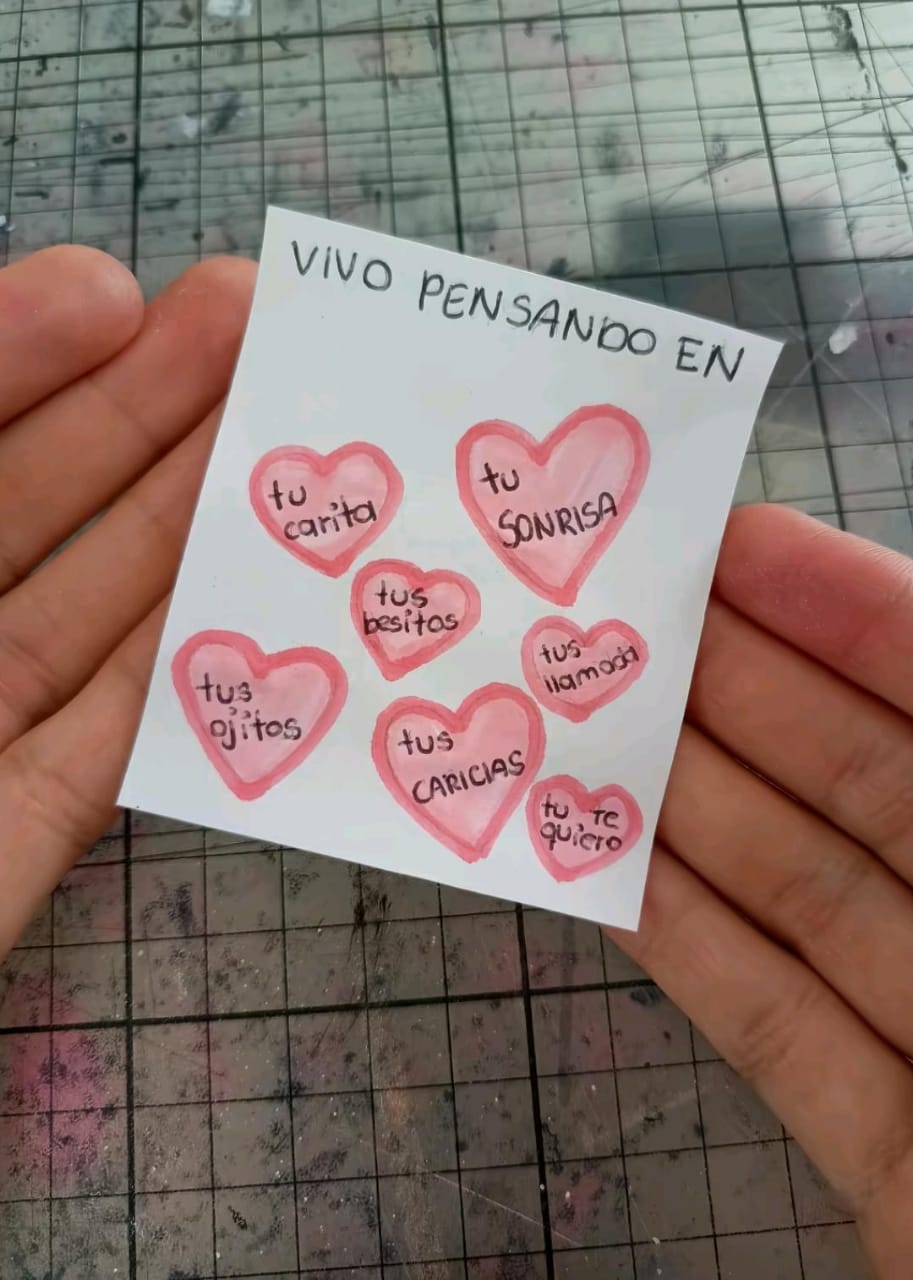 VIVO PENSANDO EN
tu
carita
tu
SONRISA
tus
besitos
tus
llamada
tus
ojitos
tus
CARICIAS
tu te
quiero